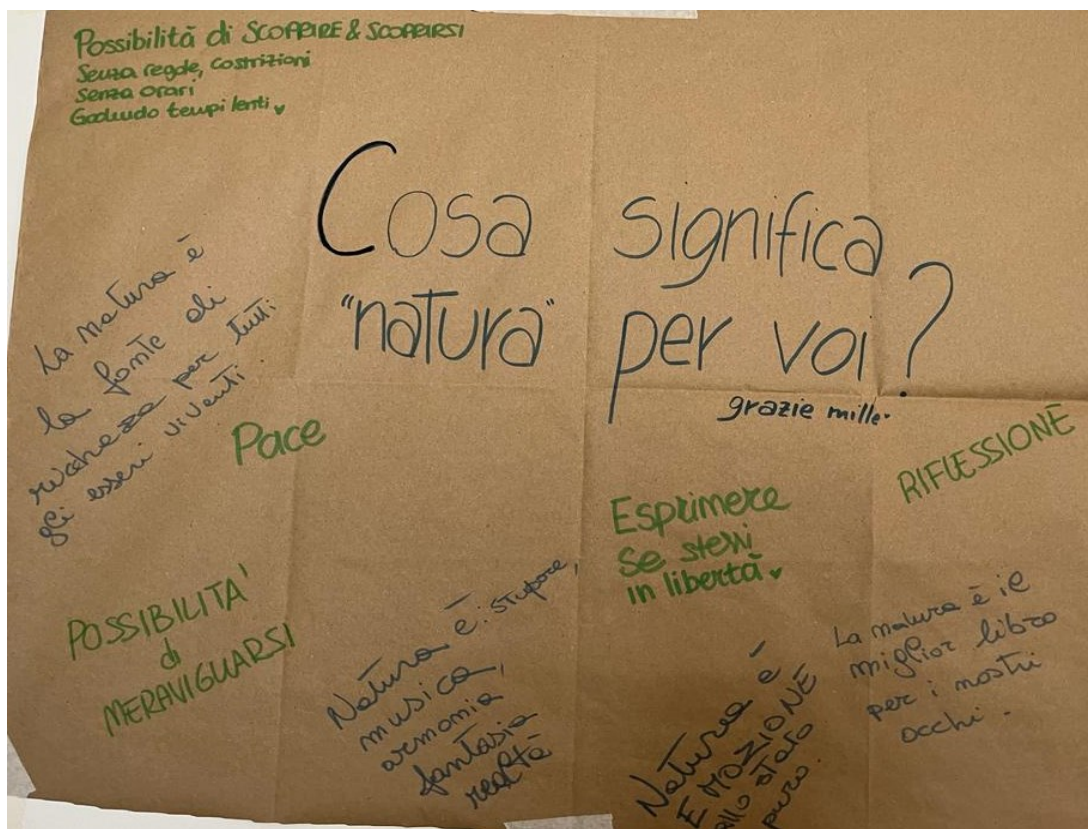 Possibilità di SCOPRIRE & SCOPRIRSI
Senza regole, costrizioni
Senza orari
Godendo tempi lenti
Cosa significa
"natura" per voi?
grazie mille.
La natura è
la fonte di
ricchezza per tutti
gli esseri viventi
Pace
RIFLESSIONE
Esprimere
se stessi
in libertà
POSSIBILITA'
di
MERAVIGLIARSI
Natura è: stupore,
musica,
armonia
fantasia
realtà
Natura è
EMOZIONE
allo stato
puro.
La natura è il
miglior libro
per i nostri
occhi.